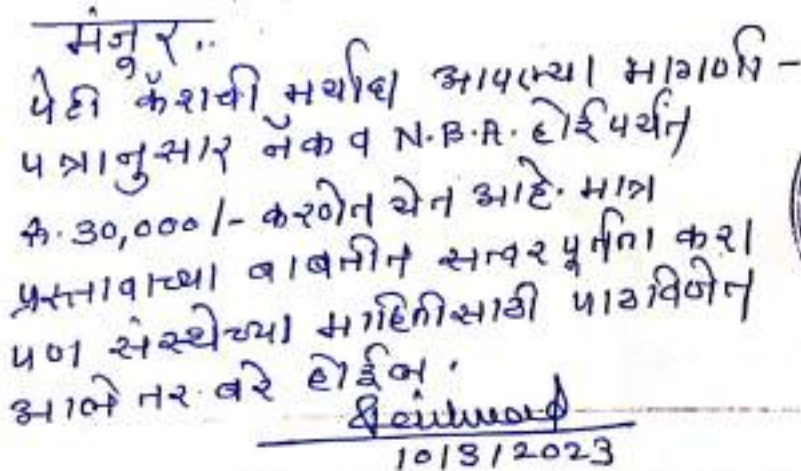 मंजूर..
पेटी कॅशची मर्यादा आपल्या मागणी-
पत्रानुसार नॅक व N.B.A. होईपर्यंत
रू. 30,000/- करणेत येत आहे. मात्र
प्रस्तावाच्या बाबतीत सत्वर पूर्तता करा
पण संस्थेच्या माहितीसाठी पाठविणेत
आले तर बरे होईल.
10/3/2023